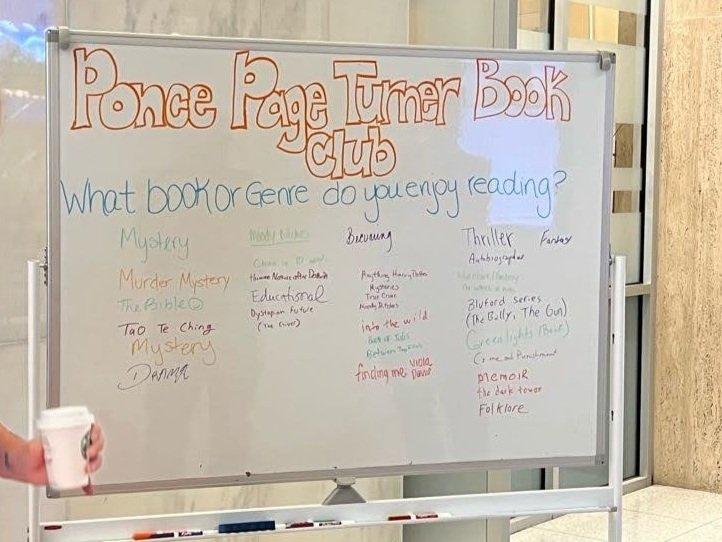 Ponce Page Turner Book
Club
What book or Genre do you enjoy reading?
Mystery
Murder Mystery
The Bible
Tao Te Ching
Mystery
Drama
Moody
Human Nature after
Educational
Dystopian Future
(The Giver)
Becoming
Anything Harry Potter
Mysteries
True Crime
into the wild
Book of
Between
finding me Viola
Davis
Thriller Fantasy
Autobiographies
Bluford Series
(The Bully, The Gun)
Greenlights (Book)
Crime and Punishment
memoir
the dark tower
Folklore